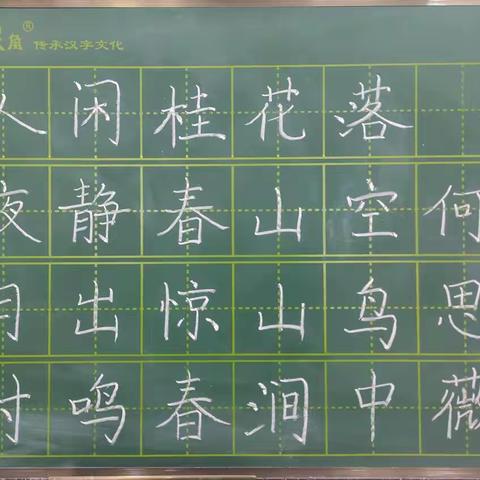 角®
传承汉字文化
人闲桂花落
夜静春山空何
月出惊山鸟思
时鸣春涧中薇